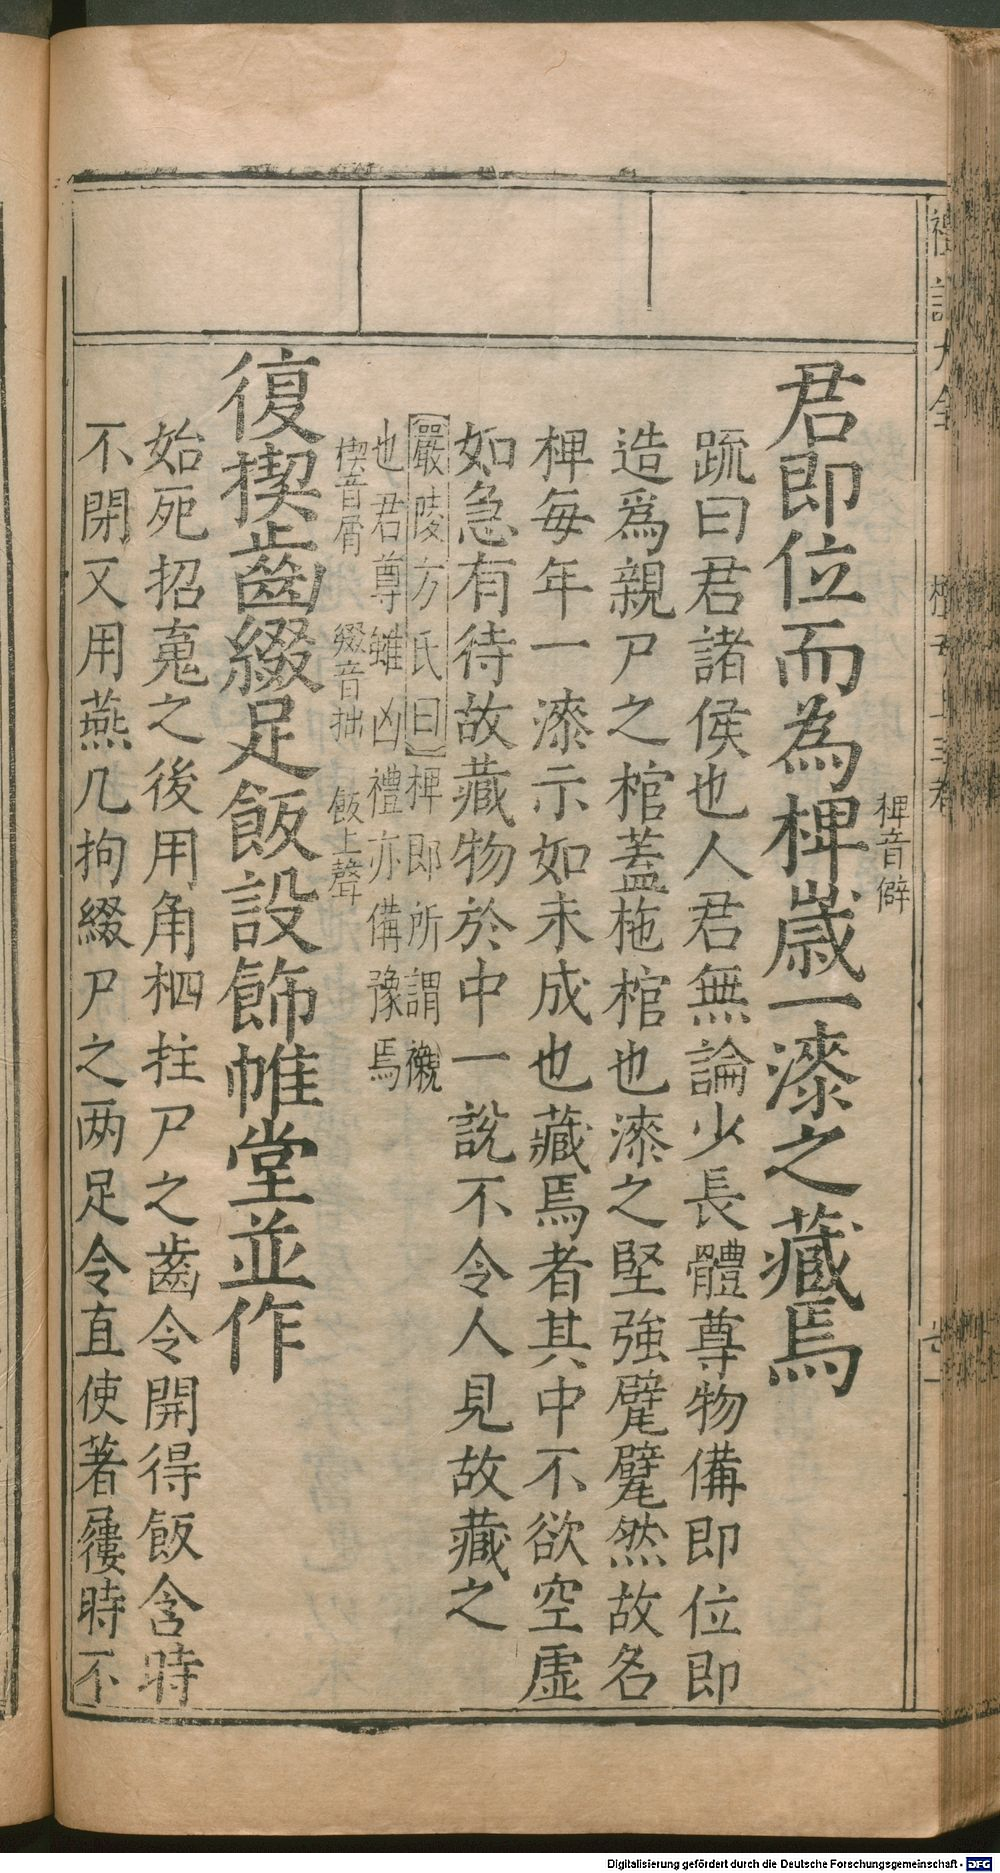 椑音僻
君即位而為椑歲一漆之藏焉
疏曰君諸侯也人君無論少長體尊物備即位即
造爲親尸之棺蓋杝棺也漆之堅強甓甓然故名
椑每年一漆示如未成也藏焉者其中不欲空虛
如急有待故藏物於中一說不令人見故藏之
嚴陵方氏曰椑即所謂櫬
也君尊雖凶禮亦備豫焉
楔音屑 綴音拙 飯上聲
復楔齒綴足飯設飾帷堂並作
始死招䰟之後用角柶拄尸之齒令開得飯含時
不閉又用燕几拘綴尸之两足令直使著屨時不
Digitalisierung gefördert durch die Deutsche Forschungsgemeinschaft - DFG